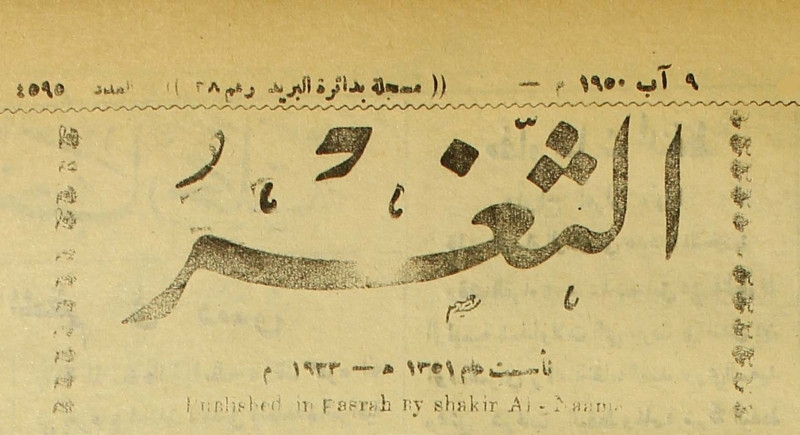 ٩ آب ١٩٥٠ م — (( مسجلة بدائرة البريد رقم ٢٨ )) العدد ٤٥٩٥
الثَّغْرُ
تأسست عام ١٣٥١ ه — ١٩٣٣ م
Published in Basrah By shakir Al-Naama